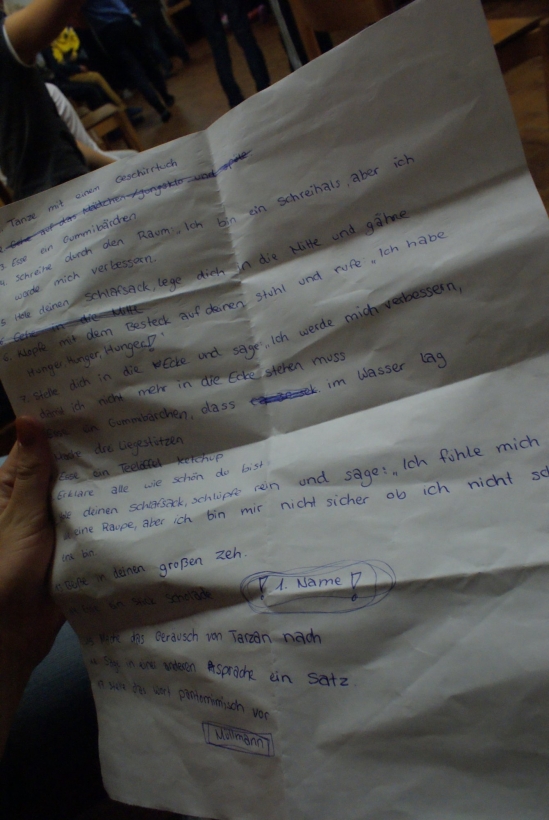 Tanze mit einem Geschirrtuch
3. Esse ein Gummibärchen
4. Schreite durch den Raum „Ich bin ein Schreihals, aber ich
werde mich verbessern
5. Hole deinen Schlafsack, lege dich in die Mitte und gähne
Gehe in die Mitte
6. Klopfe mit dem Besteck auf deinen Stuhl und rufe „Ich habe
Hunger, Hunger, Hunger!"
7. Stelle dich in die Ecke und sage „Ich werde mich verbessern,
damit ich nicht mehr in die Ecke stehen muss
ein Gummibärchen, dass im Wasser lag
drei Liegestützen
Esse ein Teelöffel Ketchup
Erkläre alle wie schön du bist
deinen Schlafsack, schlüpfe rein und sage: „Ich fühle mich
eine Raupe, aber ich bin mir nicht sicher ob ich nicht
bin
in deinen großen Zeh.
ein Stück
! 1. Name !
das Geräusch von Tarzan nach
Sag in einer anderen Sprache ein Satz.
das Wort pantomimisch vor
Müllmann